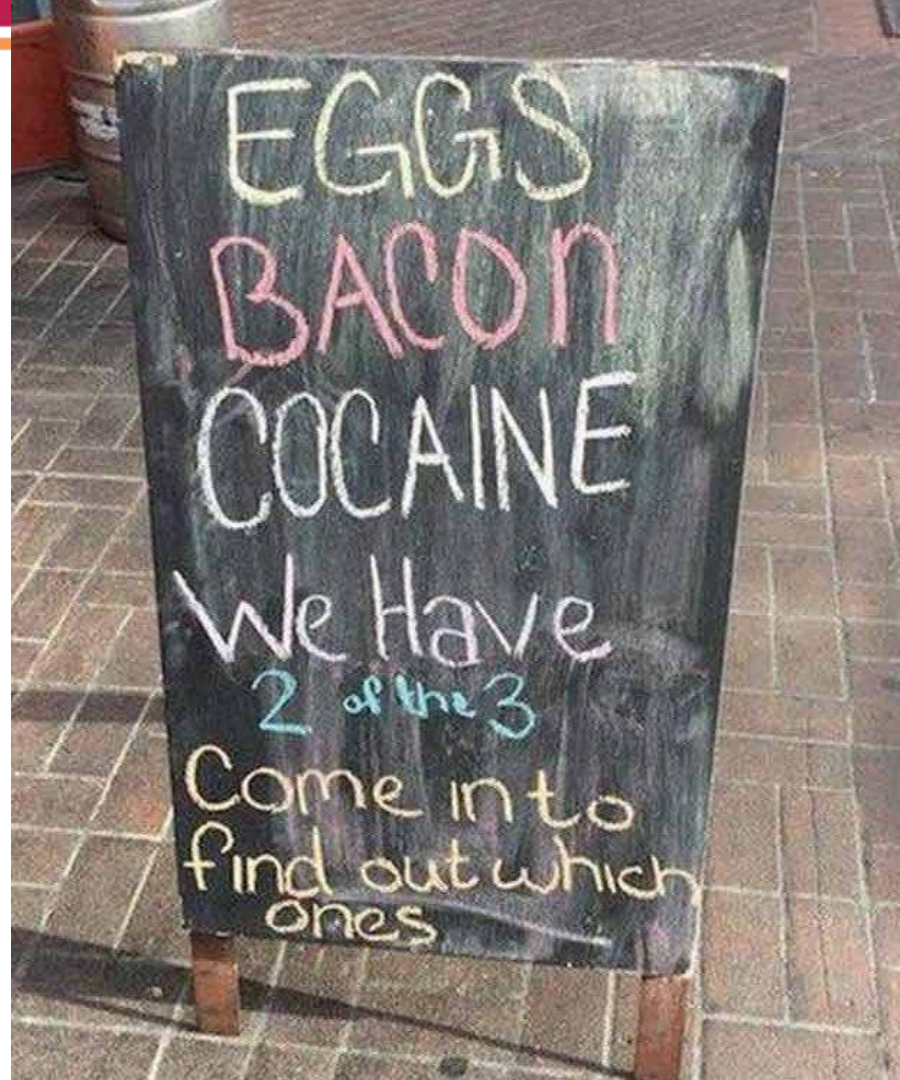 EGGS
BACOn
COCAINE
We Have
2 of the 3
Come in to
find out which
ones